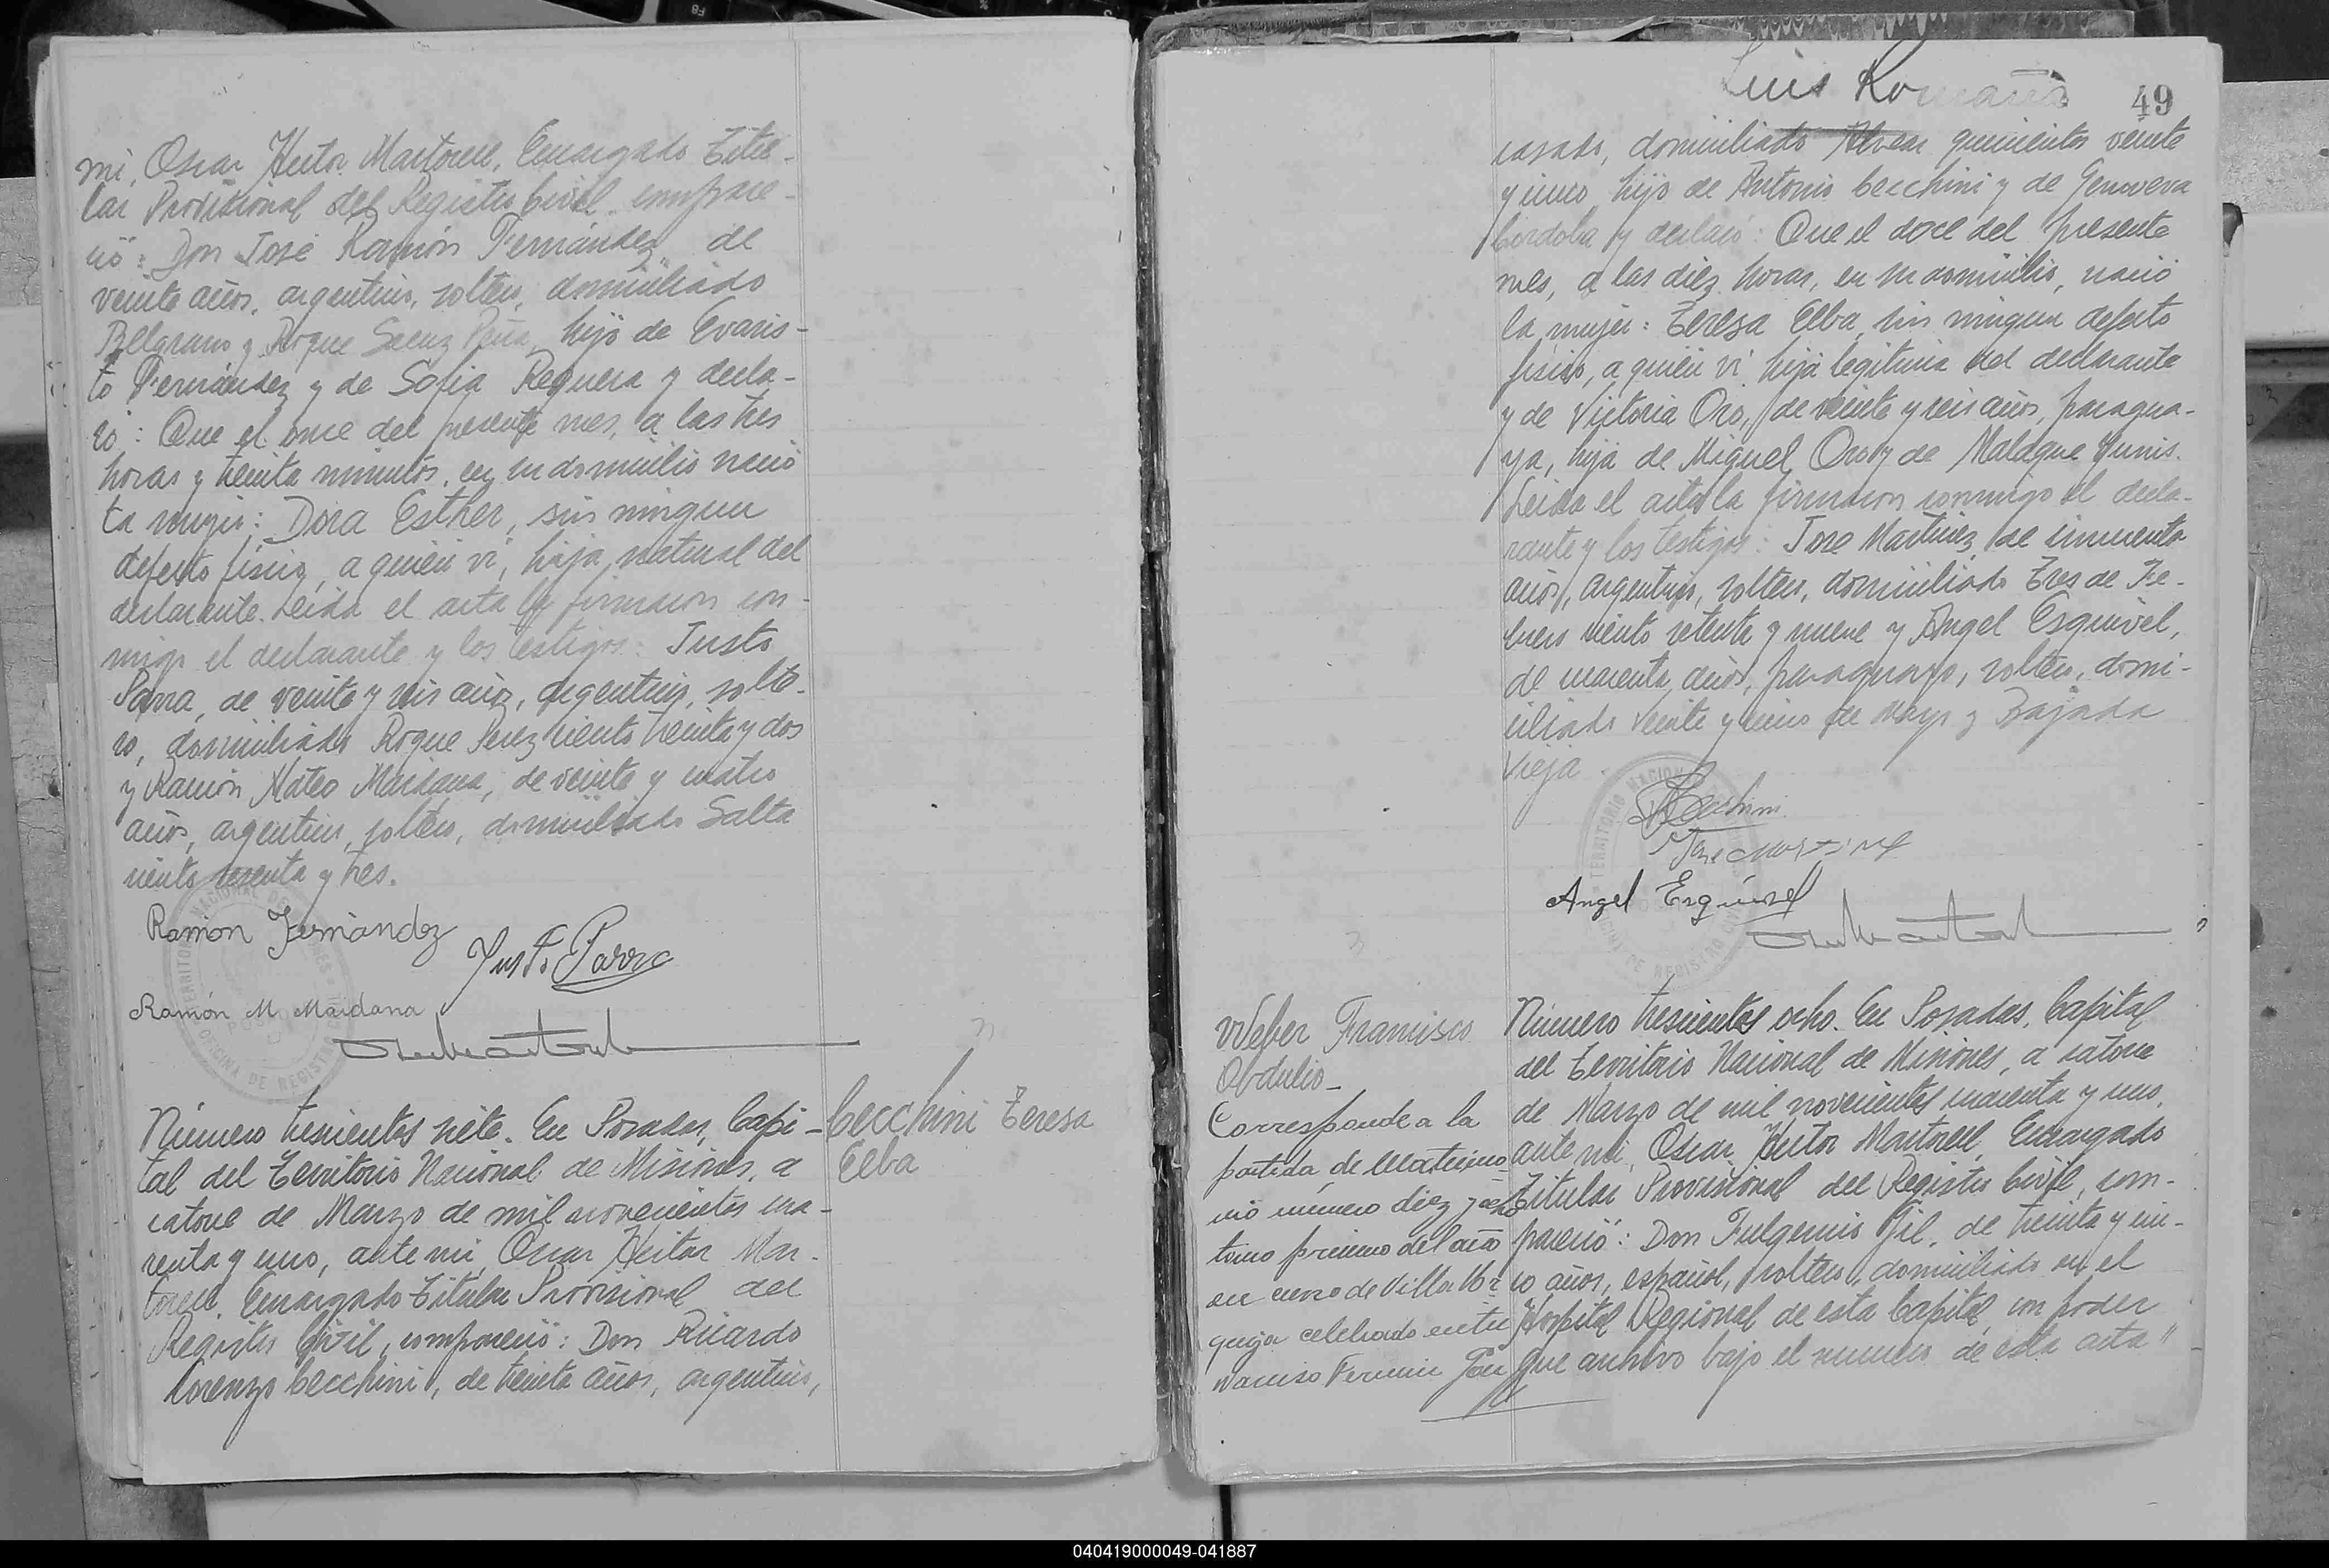 mi, Oscar Hector Martorell, Encargado Titu-
lar Provisional del Registro Civil, compare-
ció: Don José Ramón Fernández, de
veinte años, argentino, soltero, domiciliado
Belgrano y Roque Saenz Peña, hijo de Evaris-
to Fernández y de Sofia Requera y decla-
ró: Que el once del presente mes, a las tres
horas y treinta minutos, en su domicilio nació
la mujer: Dora Esther, sin ningun
defecto físico, a quién vi, hija natural del
declarante. Leida el acta la firmaron con-
migo el declarante y los testigos: Justo
Parra, de veinte y seis años, argentino, solte-
ro, domiciliado Roque Perez ciento treinta y dos
y Ramón Mateo Maidana, de veinte y cuatro
años, argentino, soltero, domiciliado Salta
ciento sesenta y tres.
Ramón Fernández
Justo Parra
Ramón M Maidana
Número trescientos siete. En Posadas, Capi-
tal del Territorio Nacional de Misiones, a
catorce de Marzo de mil novecientos cua-
renta y uno, ante mi, Oscar Hector Mar-
torell, Encargado Titular Provisional del
Registro Civil, compareció: Don Ricardo
Lorenzo Cecchini, de treinta años, argentino,
Cecchini Teresa
Elba
Luis Romaña
49
casado, domiciliado Alvear quinientos veinte
y cinco, hijo de Antonio Cecchini y de Genoveva
Cordoba y declaró: Que el doce del presente
mes, a las diez horas, en su domicilio, nació
la mujer: Teresa Elba, sin ningun defecto
físico, a quién vi, hija legitima del declarante
y de Victoria Oro, de veinte y seis años, paragua-
ya, hija de Miguel Oro y de Malaque Yunis.
Leida el acta la firmaron conmigo el decla-
rante y los testigos: Jose Martinez, de cincuenta
años, argentino, soltero, domiciliado Tres de Fe-
brero ciento setenta y nueve y Angel Esquivel,
de cuarenta años, paraguayo, soltero, domi-
ciliado veinte y cinco de mayo y Bajada
Vieja.
Cecchini
Jose Martinez
Angel Esquivel
Weber Francisco
Obdulio-
Corresponde a la
partida de Matrimo
nio número diez y ocho
tomo primero del año
en curso de Villa Ur
quiza celebrado entre
Narciso Fermin
Número trescientos ocho. En Posadas, Capital
del Territorio Nacional de Misiones, a catorce
de Marzo de mil novecientos cuarenta y uno,
ante mi, Oscar Hector Martorell, Encargado
Titular Provisional del Registro Civil, com-
pareció: Don Fulgencio Gil, de treinta y cin-
co años, español, soltero, domiciliado en el
Hospital Regional de esta Capital, con poder
que archivo bajo el numero de esta acta"
040419000049-041887